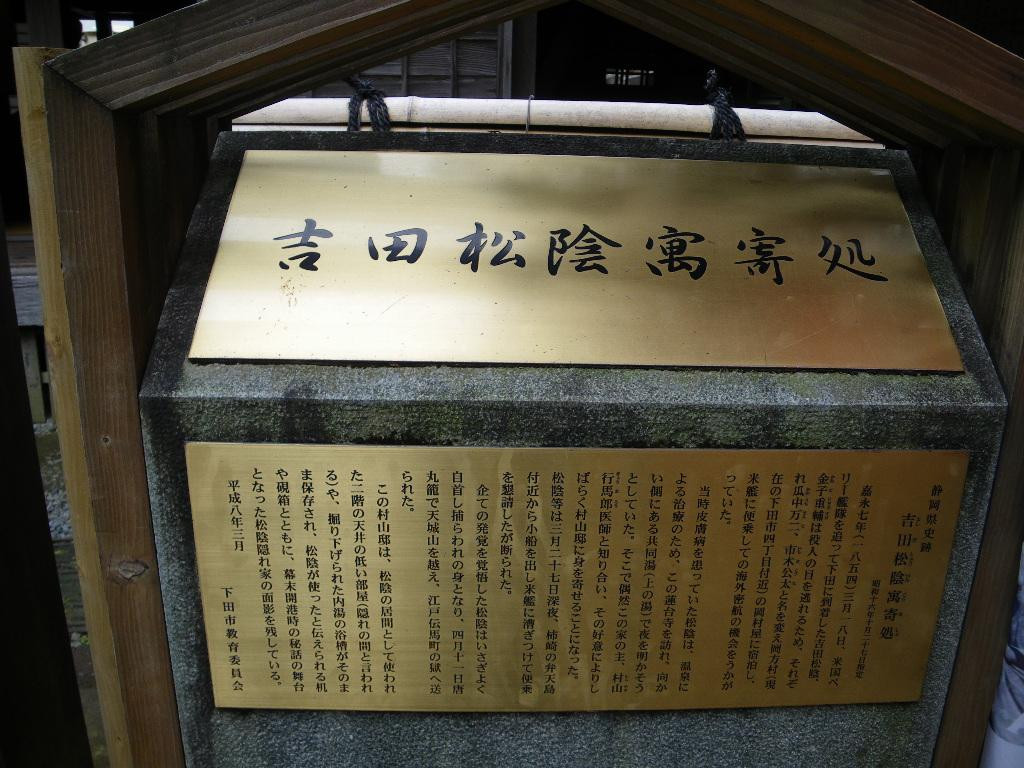 吉田松陰寓寄処
静岡県史跡
吉田松陰寓寄処
昭和十六年十月二十七日指定
嘉永七年(一八五四)三月一八日、米国ペ
リー艦隊を追って下田に到着した吉田松陰、
金子重輔は役人の目を逃れるため、それぞ
れ瓜中万二、市木公太と名を変え岡方村(現
在の下田市四丁目付近)の岡村屋に宿泊し、
米艦に便乗しての海外密航の機会をうかが
っていた。
当時皮膚病を患っていた松陰は、温泉に
よる治療のため、この蓮台寺を訪れ、向か
い側にある共同湯(上の湯)で夜を明かそう
としていた。そこで偶然この家の主、村山
行馬郎医師と知り合い、その好意によりし
ばらく村山邸に身を寄せることになった。
松陰等は三月二十七日深夜、柿崎の弁天島
付近から小船を出し米艦に漕ぎつけて便乗
を懇請したが断られた。
企ての発覚を覚悟した松陰はいさぎよく
自首し捕らわれの身となり、四月十一日唐
丸籠で天城山を越え、江戸伝馬町の獄へ送
られた。
この村山邸は、松陰の居間として使われ
た二階の天井の低い部屋(隠れの間と言われ
る)や、掘り下げられた内湯の浴槽がそのま
ま保存され、松陰が使ったと伝えられる机
や硯箱とともに、幕末開港時の秘話の舞台
となった松陰隠れ家の面影を残している。
平成八年三月
下田市教育委員会